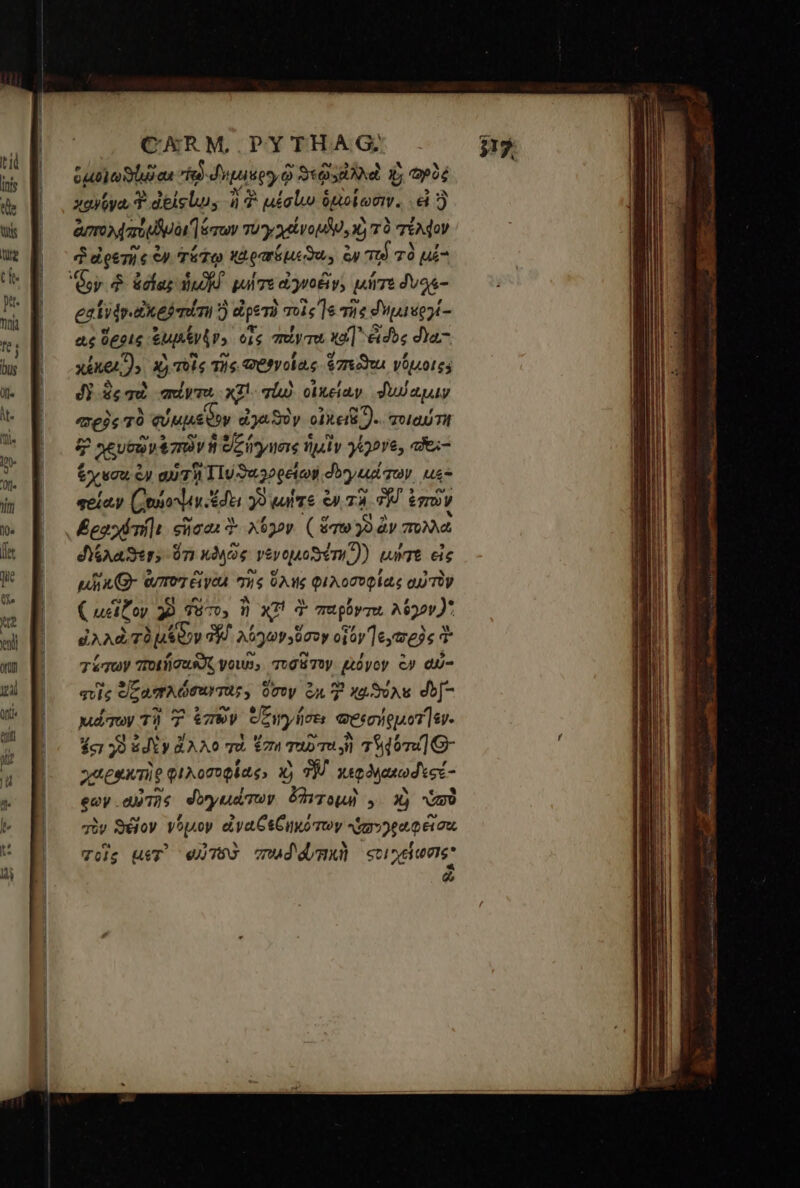 CARM. PYTHAG. 317
ὁμοιωθῆναι τῷ δημιουργῷ θεῷ, ἀλλὰ καὶ πρὸς
κανόνα τ̃ ἀρίστην, ἢ τ̃ μέσην ὁμοίωσιν. εἰ δὲ
ἀπολειπόμενοι τούτων τυγχάνομεν, καὶ τὸ τέλειον
τῆς ἀρετῆς ἐν τούτῳ καρπούμεθα, ἐν τῷ τὸ μέ-
τρον τῆς οὐσίας ἡμῶν μήτε ἀγνοεῖν, μήτε δυσχε-
ραίνειν. ἀκροτάτη δὲ ἀρετὴ τοῖς τε τῆς δημιουργί-
ας ὅροις ἐμμένειν, οἷς πάντα κατ' εἶδος δια-
κέκριται, καὶ τοῖς τῆς προνοίας ἕπεσθαι νόμοις,
δι' οὓς τὰ πάντα κατὰ τὴν οἰκείαν δύναμιν
πρὸς τὸ σύμμετρον ἀγαθὸν οἰκειοῦται. τοιαύτη
τῶν χρυσῶν ἐπῶν ἡ ἐξήγησις ἡμῖν γέγονε, περι-
έχουσα ἐν αὑτῇ Πυθαγορείων δογμάτων με-
τρίαν σύνοψιν. ἔδει γὰρ μήτε ἐν τῇ τῶν ἐπῶν
βραχύτητι στῆσαι τὸν λόγον (οὕτω γὰρ ἂν πολλὰ
διέλαθεν, ὅτι καλῶς νενομοθέτηται) μήτε εἰς
μῆκος ἀποτεῖναι τῆς ὅλης φιλοσοφίας αὐτὸν
(μεῖζον γὰρ τοῦτο, ἢ κατὰ τὸν παρόντα λόγον)·
ἀλλὰ τὸ μέτρον τῶν λόγων, ὅσον οἷόν τε, πρὸς τὸν
τούτων ποιήσασθαι νοῦν, τοσοῦτον μόνον ἐν αὐ-
τοῖς ἐξαπλώσαντας, ὅσον ἐκ τῶν καθόλου δογ-
μάτων τῇ τῶν ἐπῶν ἐξηγήσει προσήρμοττεν.
ἔστι γὰρ οὐδὲν ἄλλο τὰ ἔπη ταῦτα, ἢ τελειότατος
χαρακτὴρ φιλοσοφίας, καὶ τῶν κεφαλαιωδεστέ-
ρων αὐτῆς δογμάτων ἐπιτομὴ, καὶ ὑπὸ
τὸν θεῖον νόμον ἀναβεβηκότων ὑπογραφεῖσα
τοῖς μετ' αὐτοὺς παιδευτικὴ στοιχείωσις·
ᾧ